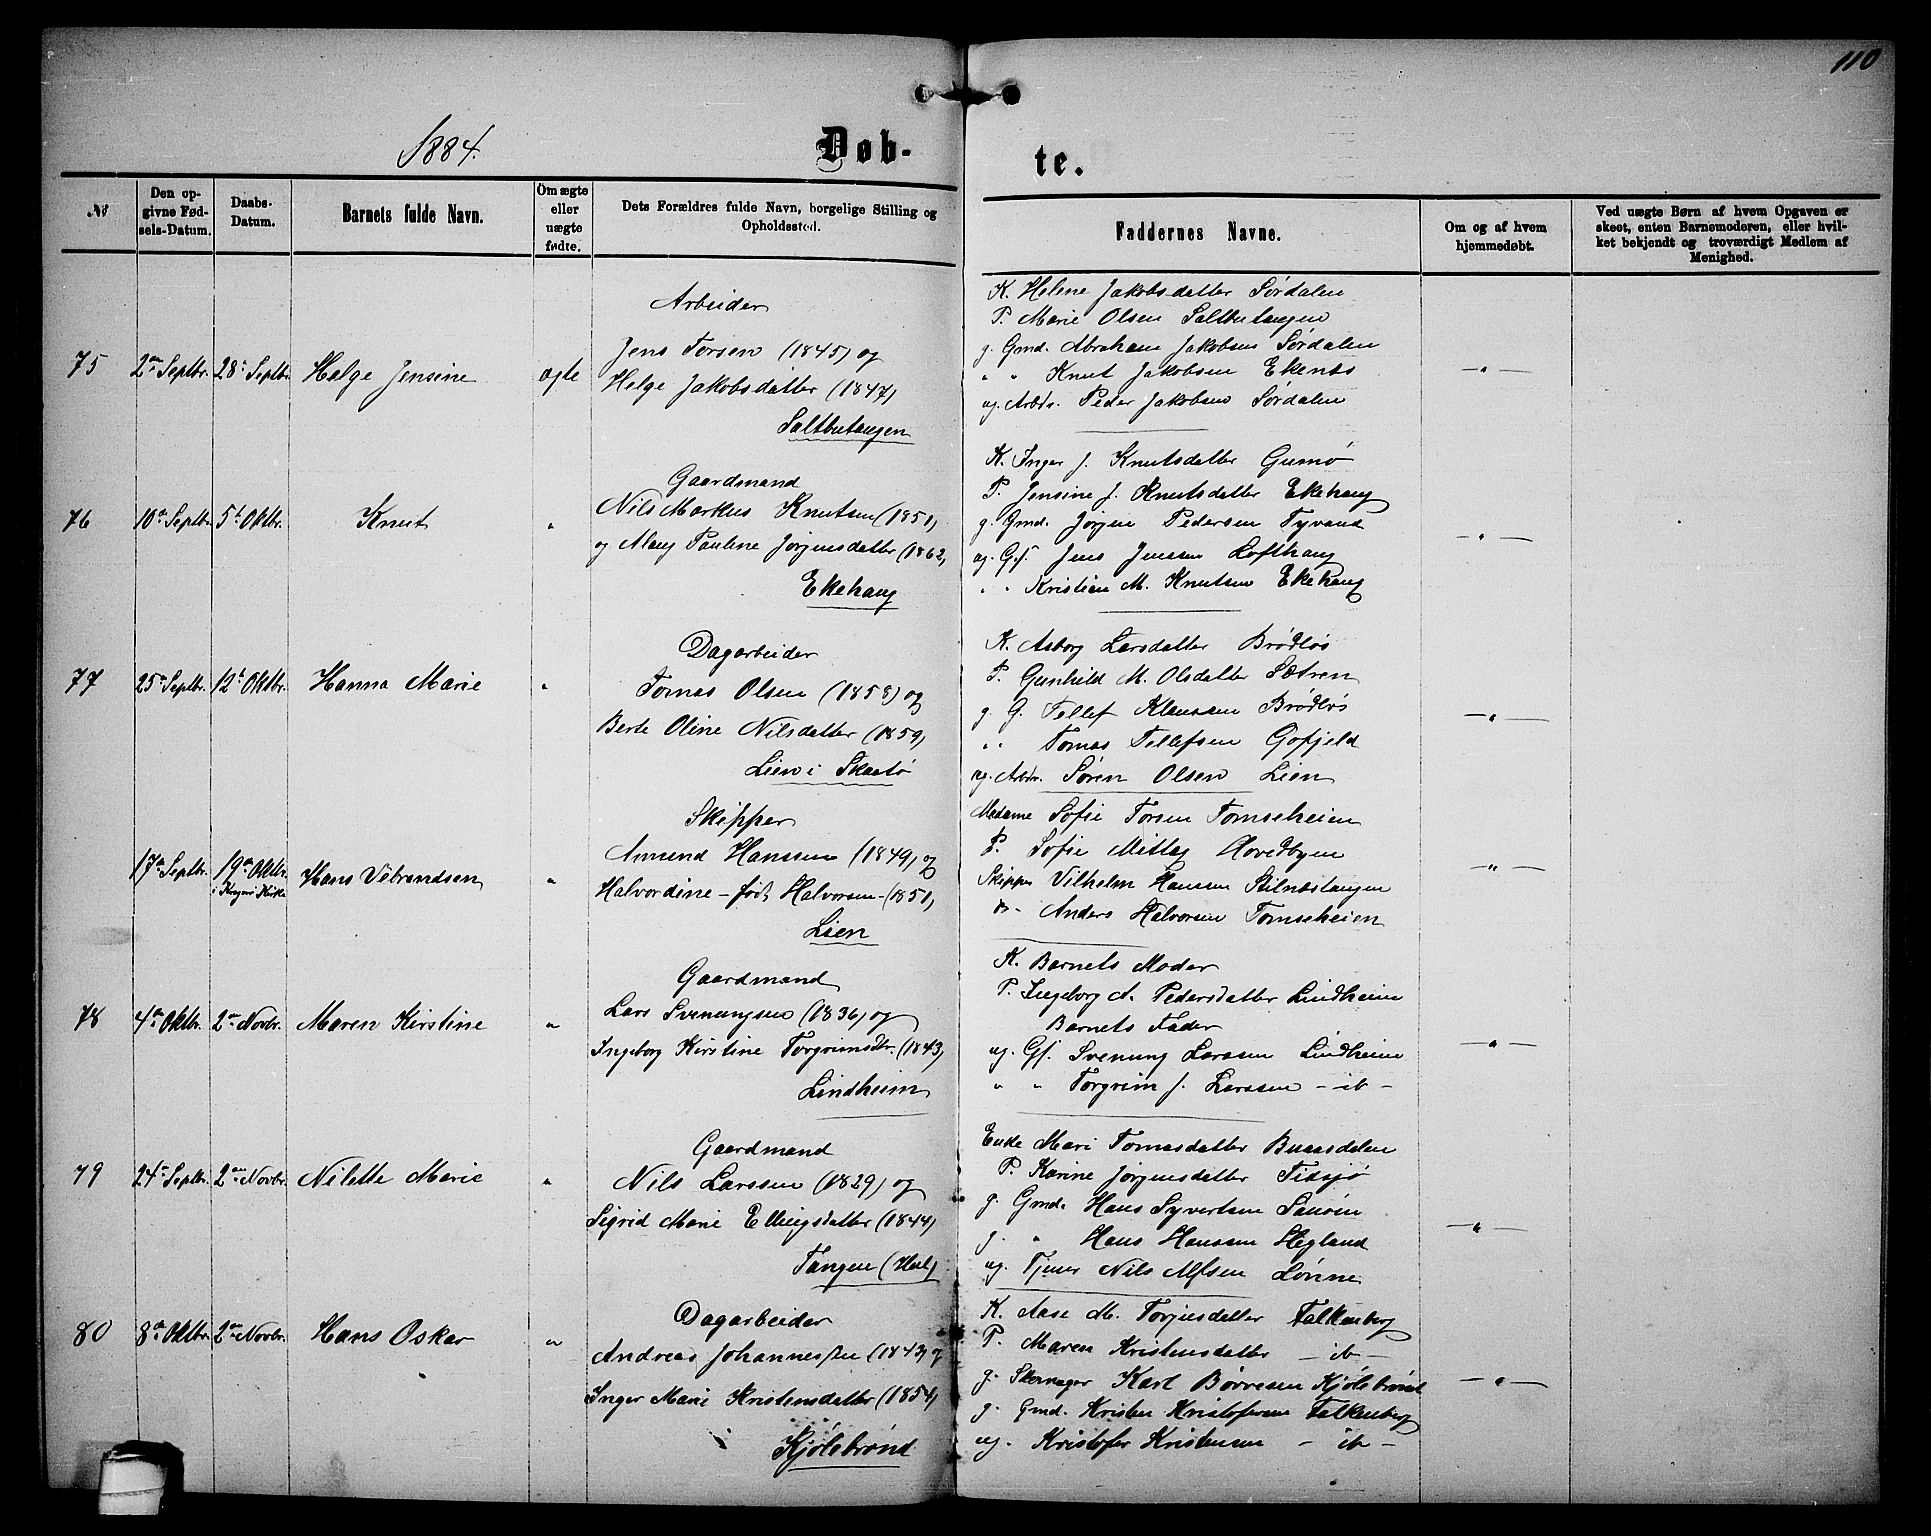 110
1884.
Døb-
te.
No
Den op-
givne Fød-
sels-Datum.
Daabs-
Datum.
Barnets fulde Navn.
Om ægte
eller
uægte
fødte.
Dets Forældres fulde Navn, borgelige Stilling og
Opholdssted.
Faddernes Navne.
Om og af hvem
hjemmedøbt.
Ved uægte Børn af hvem Opgaven er
skeet, enten Barnemoderen, eller hvil-
ket bekjendt og troværdigt Medlem af
Menighed.
75
2den Septbr.
28de Septbr.
Helge Jensine
ægte
Arbeider
Jens Torsen (1845) og
Helge Jakobsdatter (1847)
Saltbutangen
K. Helene Jakobsdatter Sørdalen
P. Marie Olsen Saltbutangen
g. Gmd. Abraham Jakobsen Sørdalen
" " Knut Jakobsen Ekenæs
ug. Arbdr. Peder Jakobsen Sørdalen
— " —
76
10de Septbr.
5te Oktbr.
Knut
"
Gaardmand
Nils Markus Knutsen (1851)
og Alaug Pauline Jørgensdatter (1862)
Ekehaug
K. Inger J. Knutsdatter Gumø
P. Jensine J. Knutsdatter Ekehaug
g. Gmd. Jørgen Pedersen Tyvand
ug. Gf. Jens Jenssen Lofthaug
" " Kristian M. Knutsen Ekehaug
— " —
77
25de Septbr.
12te Oktbr.
Hanna Marie
"
Dagarbeider
Tomas Olsen (1858) og
Berte Oline Nilsdatter (1859)
Lien i Skaatø
K. Asborg Larsdatter Brødløs
P. Gunhild M. Olsdatter Sætren
g. G. Tellef Klausen Brødløs
" " Tomas Tellefsen Gofjeld
ug. Arbdr. Søren Olsen Lien
— " —
17de Septbr.
19de Oktbr.
i Kragerø Kirke
Hans Vibrandsen
"
Skipper
Amund Hanssen (1849) og
Halvordine – født Halvorsen – (1851)
Lien
Madame Sofie Torsen Tomseheien
P. Sofie Mitlag Hovedbyen
Skipper Vilhelm Hansen Stilnæstangen
do - Anders Halvorsen Tomseheien
— " —
78
4de Oktbr.
2den Novbr.
Maren Kirstine
"
Gaardmand
Lars Svenungsen (1836) og
Ingeborg Kirstine Torgrimsdtr. (1843)
Lindheim
K. Barnets Moder
P. Ingeborg A. Pedersdatter Lindheim
Barnets Fader
ug. Gf. Svenung Larssen Lindheim
" " Torgrim J. Larssen – ib –
— " —
79
24de Septbr.
2den Novbr.
Nilette Marie
"
Gaardmand
Nils Larssen (1829) og
Sigrid Marie Ellingsdatter (1844)
Tangen (Hul)
Enke Mari Tomasdatter Buaasdalen
P. Karine Jørgensdatter Tissjø
g. Gmd. Hans Syvertsen
g. " Hans Hanssen Hegland
ug. Tjener Nils Alfsen Lønne
— " —
80
8de Oktbr.
2den Novbr.
Hans Oskar
"
Dagarbeider
Andreas Johannessen (1843) og
Inger Marie Kristensdatter (1854)
Kjølebrønd
K. Aase M. Torjusdatter Falkenberg
P. Maren Kristensdatter – ib –
g. Skomager Karl Børresen Kjølebrønd
g. Gmd. Kristen Kristofersen Falkenberg
ug. Kristofer Kristensen – ib –
— " —